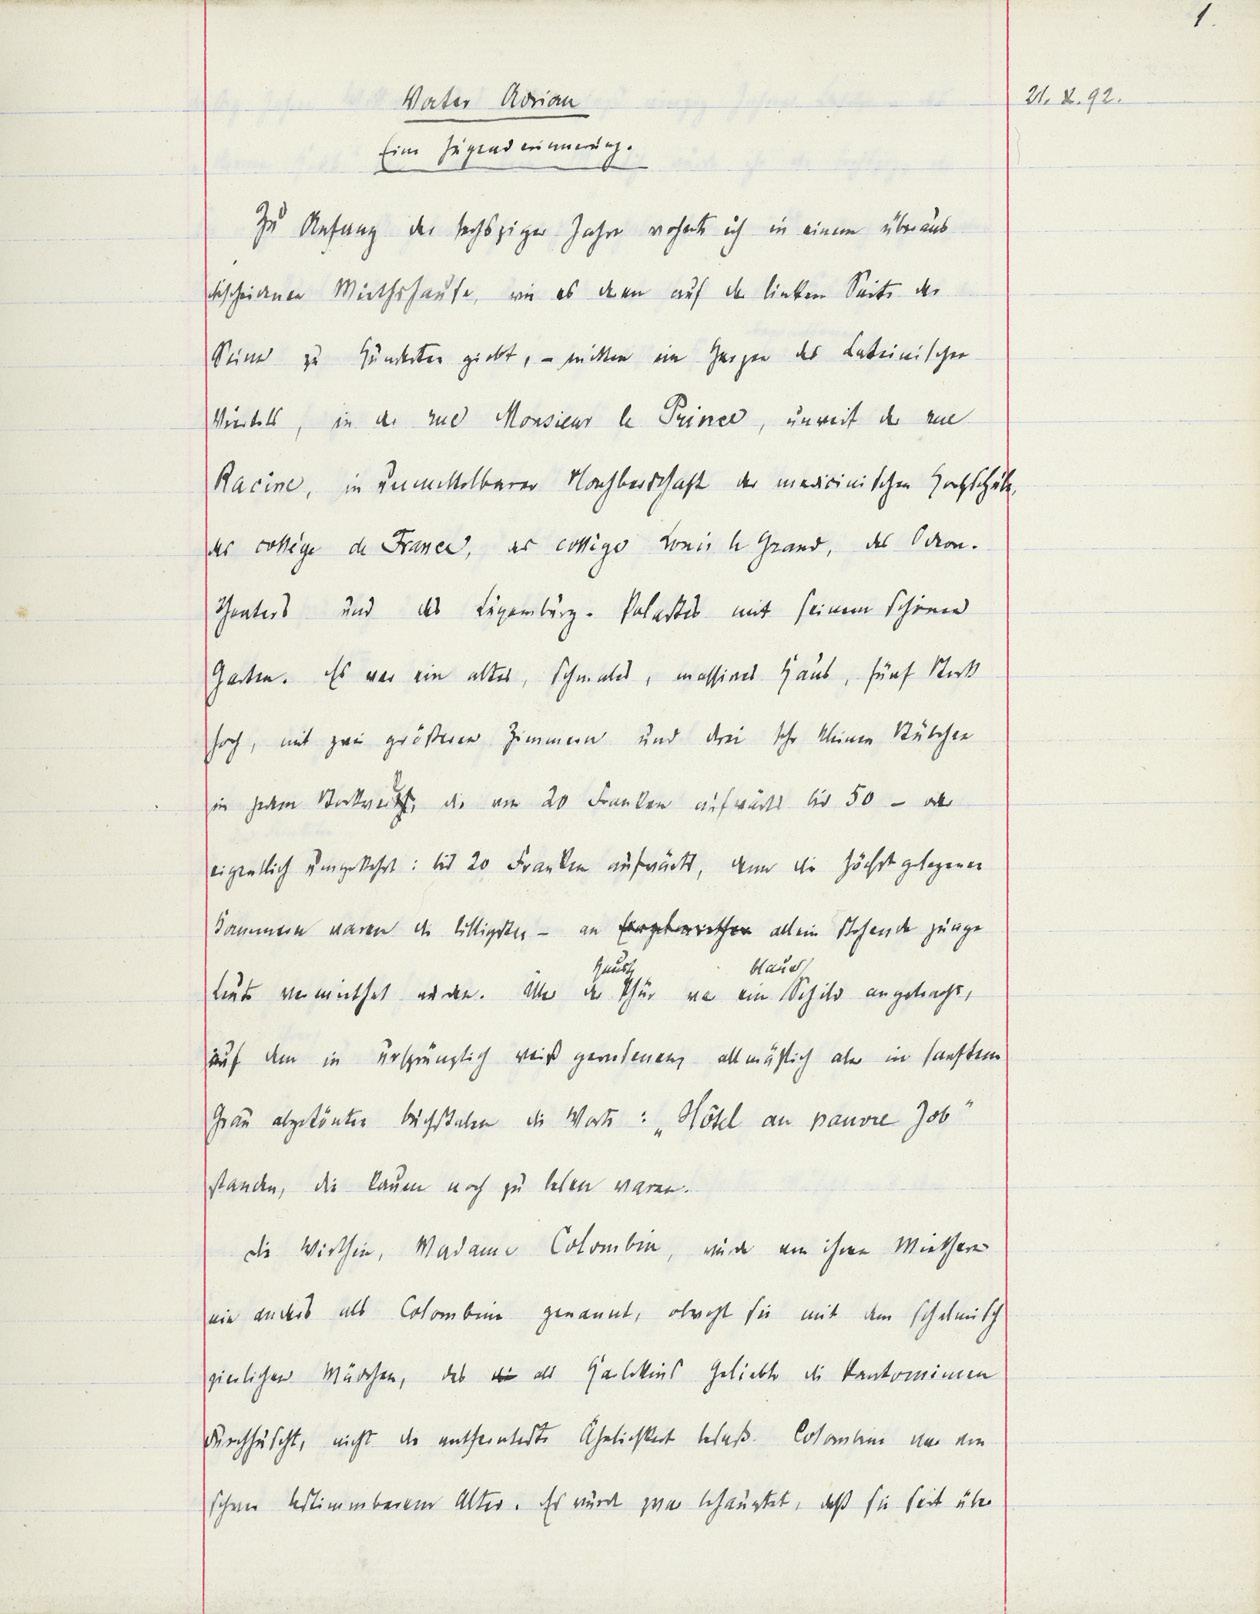 1.
21. X. 92.
Vater Adrian
Eine Jugenderinnerung.
Zu Anfang der sechsziger Jahre wohnte ich in einem überaus
bescheidenen Miethshause, wie es deren auf der linken Seite der
Seine zu Hunderten giebt, – mitten im Herzen des Lateinischen
Viertels, in der rue Monsieur le Prince, unweit der rue
Racine, in unmittelbarer Nachbarschaft der medicinischen Hochschule,
des collège de France, des collège Louis le Grand, des Odeon-
Theaters und des Luxemburg-Palastes mit seinem schönen
Garten. Es war ein altes, schmales, massives Haus, fünf Stock
hoch, mit zwei größeren Zimmern und drei sehr kleinen Stübchen
in jedem Stockwerk, die von 20 Franken aufwärts bis 50 – oder
eigentlich umgekehrt: bis 20 Franken aufwärts, denn die höchst gelegenen
Kammern waren die billigsten – an allein stehende junge
Leute vermiethet wurden. Über der Hausthür war ein blaues Schild angebracht,
auf dem in ursprünglich weiß gewesenen, allmählich aber in sanftem
Grau abgetönten Buchstaben die Worte: „Hôtel au pauvre Job"
standen, die kaum noch zu lesen waren.
Die Wirthin, Madame Colombin, wurde von ihren Miethern
nie anders als Colombine genannt, obwohl sie mit dem schelmisch
zierlichen Mädchen, das die als Harlekins Geliebte die Pantomimen
durchhuscht, nicht die entfernteste Ähnlichkeit besaß. Colombine war von
schwer bestimmbarem Alter. Es wurde zwar behauptet, daß sie seit über